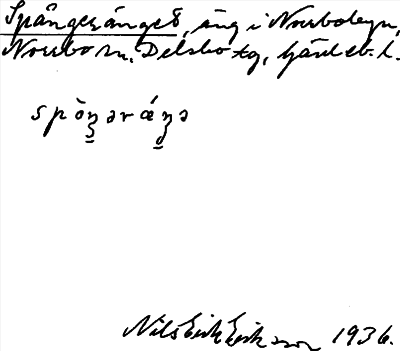 Spångesänget, äng i Norrbobyn,
Norrbo sn, Delsbo tg, Gävleb. l.
spòŋəráeŋə
Nils Erik Eriksson 1936.